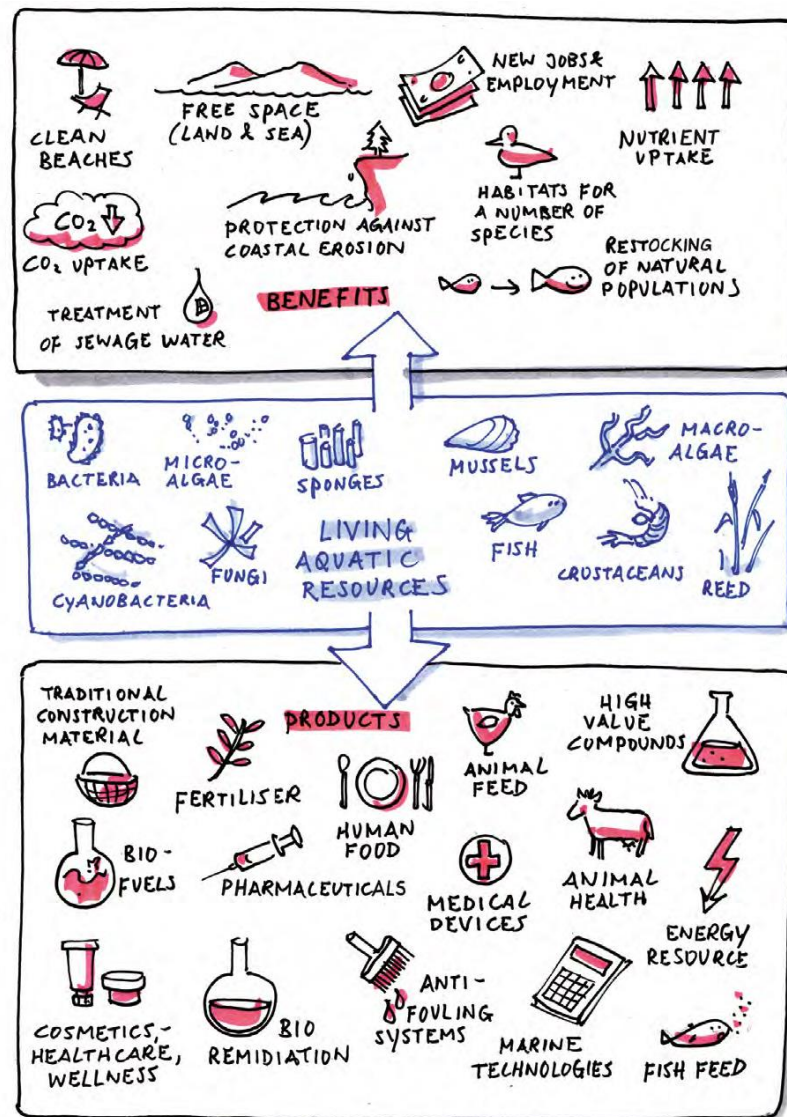 CLEAN
BEACHES
FREE SPACE
(LAND & SEA)
NEW JOBS &
EMPLOYMENT
NUTRIENT
UPTAKE
CO₂
CO₂ UPTAKE
PROTECTION AGAINST
COASTAL EROSION
HABITATS FOR
A NUMBER OF
SPECIES
RESTOCKING
OF NATURAL
POPULATIONS
TREATMENT
OF SEWAGE WATER
BENEFITS
BACTERIA
MICRO-
ALGAE
SPONGES
MUSSELS
MACRO-
ALGAE
CYANOBACTERIA
FUNGI
LIVING
AQUATIC
RESOURCES
FISH
CRUSTACEANS
REED
PRODUCTS
TRADITIONAL
CONSTRUCTION
MATERIAL
FERTILISER
HUMAN
FOOD
ANIMAL
FEED
HIGH
VALUE
COMPOUNDS
BIO-
FUELS
PHARMACEUTICALS
MEDICAL
DEVICES
ANIMAL
HEALTH
ENERGY
RESOURCE
COSMETICS,-
HEALTHCARE,
WELLNESS
BIO
REMIDIATION
ANTI-
FOULING
SYSTEMS
MARINE
TECHNOLOGIES
FISH FEED